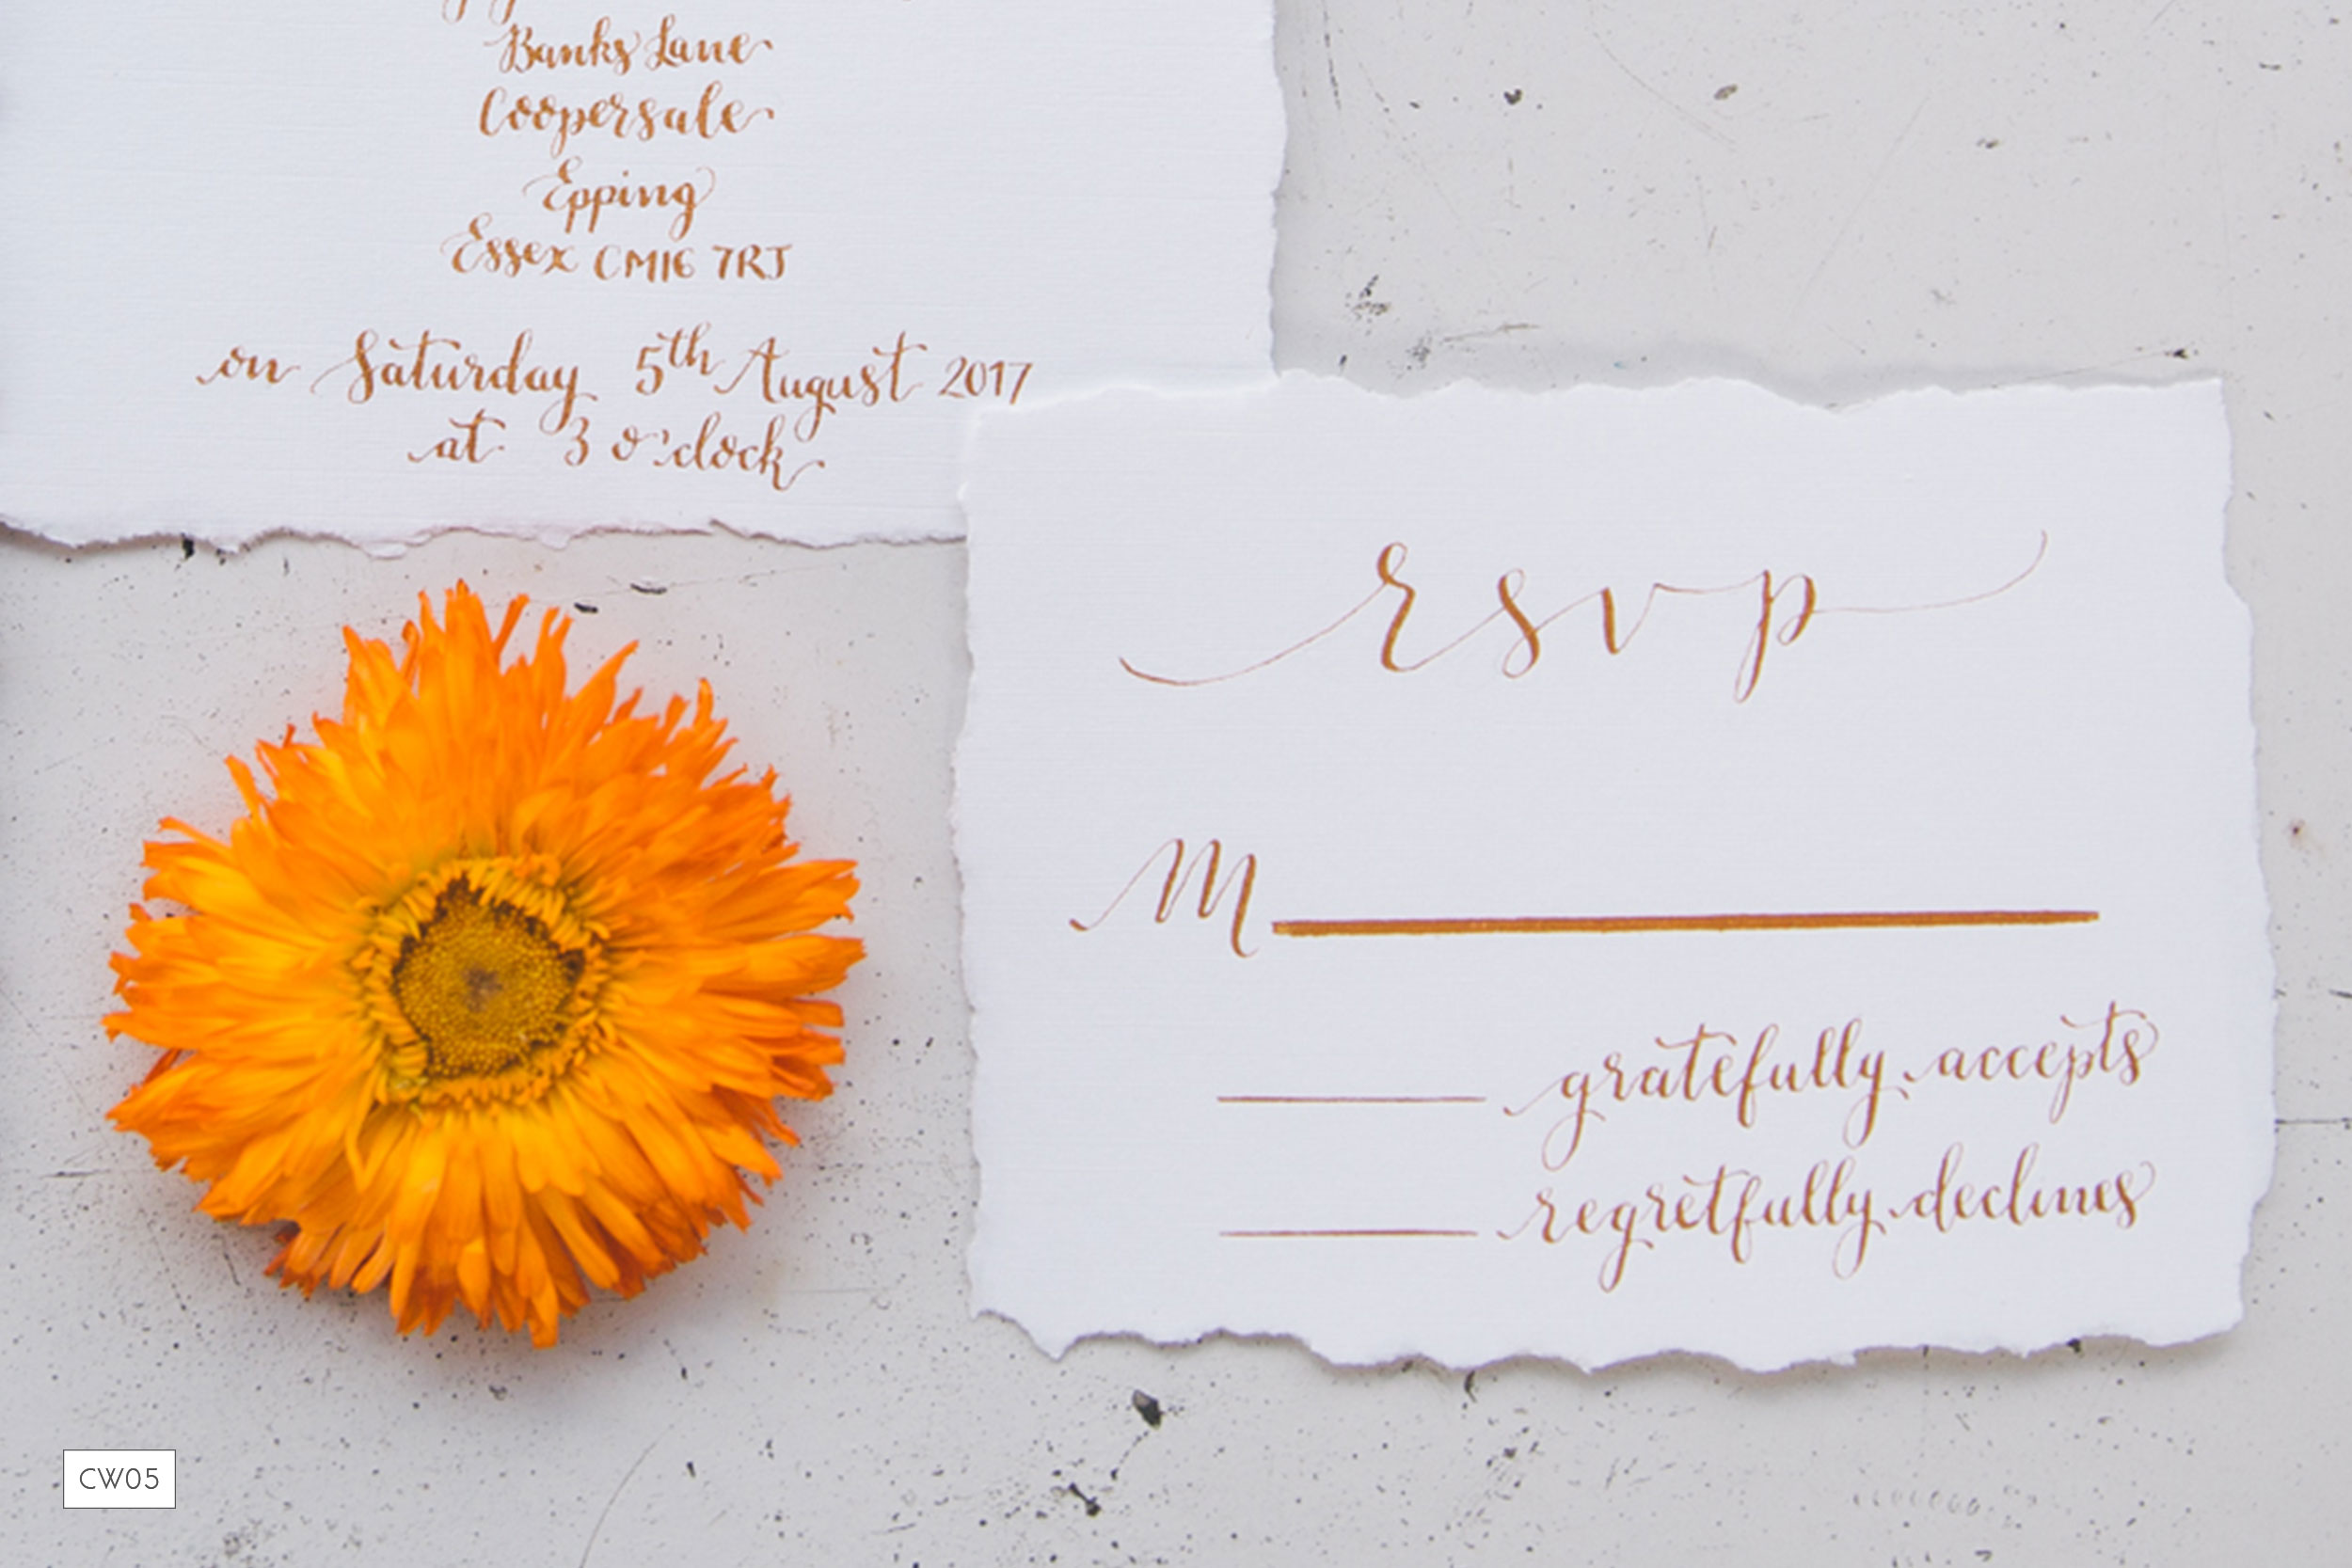 Banks Lane
Coopersale
Epping
Essex CM16 7RJ
on Saturday 5th August 2017
at 3 o'clock
rsvp
M
gratefully accepts
regretfully declines
CW05